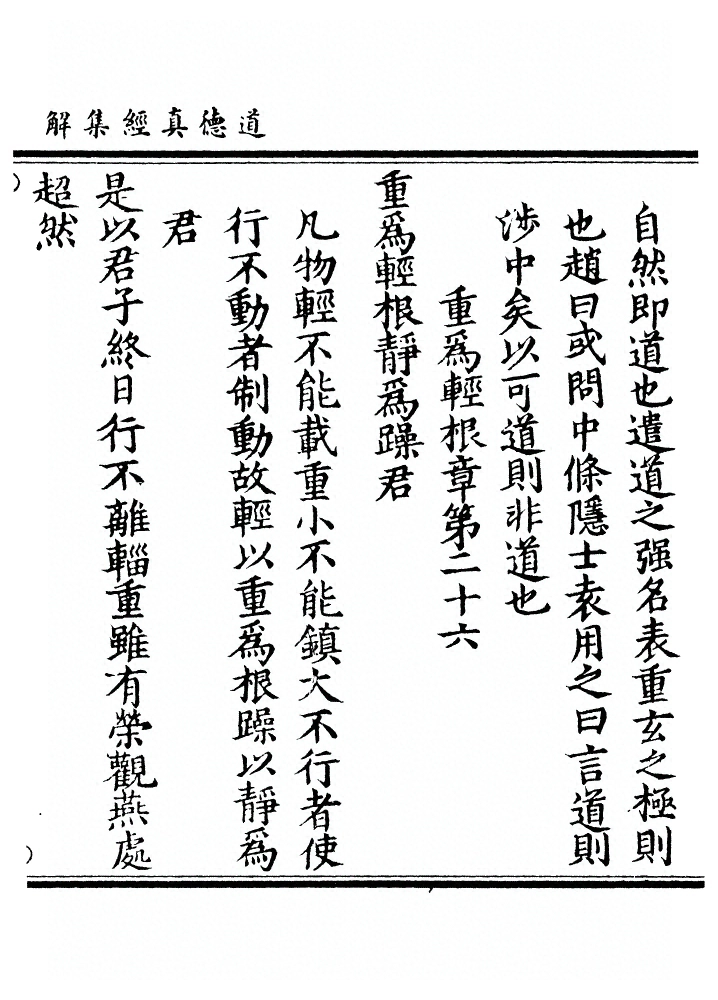 道德真經集解
自然即道也遣道之强名表重玄之極則
也趙曰或問中條隱士袁用之曰言道則
涉中矣以可道則非道也
重爲輕根章第二十六
重爲輕根靜爲躁君
凡物輕不能載重小不能鎮大不行者使
行不動者制動故輕以重爲根躁以靜爲
君
是以君子終日行不離輜重雖有榮觀燕處
超然